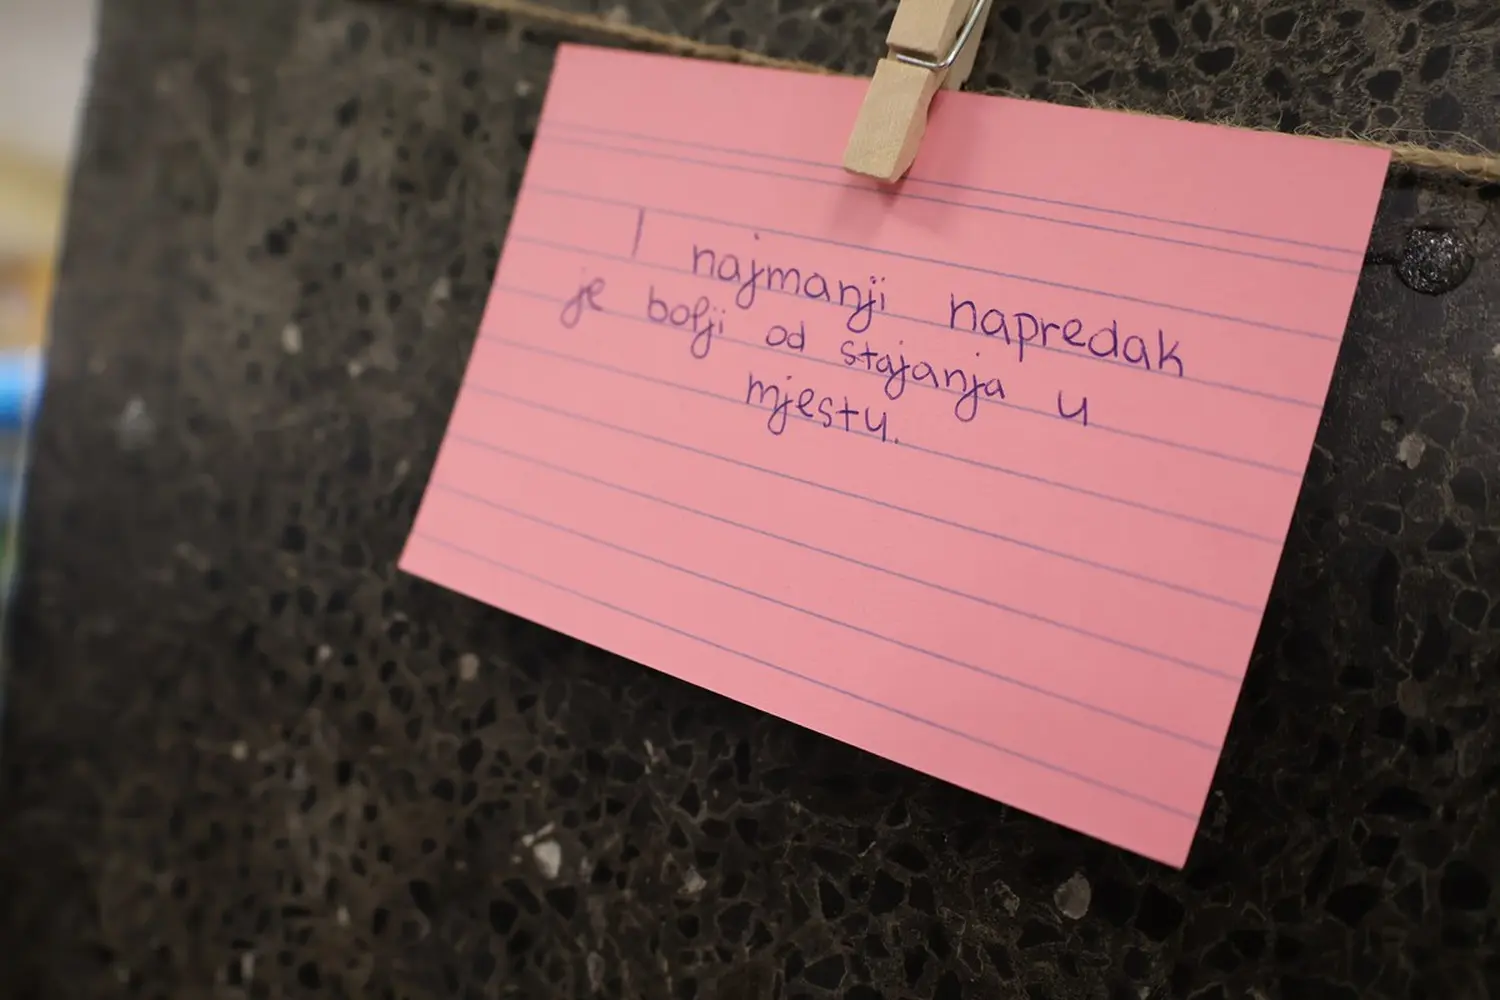 I najmanji napredak
je bolji od stajanja u
mjestu.